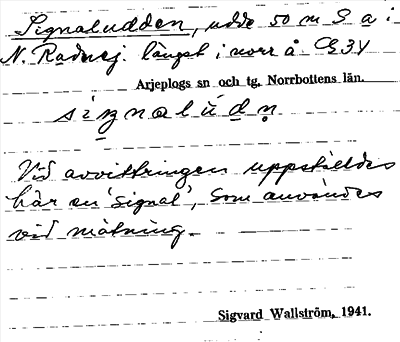 Signaludden, udde 50 m S a i
N. Radnej. längst i norr å G3Y
Arjeplogs sn och tg. Norrbottens län.
signalúdn̥
Vid avvittringen uppställdes
här en 'signal', som användes
vid mätning.
Sigvard Wallström, 1941.